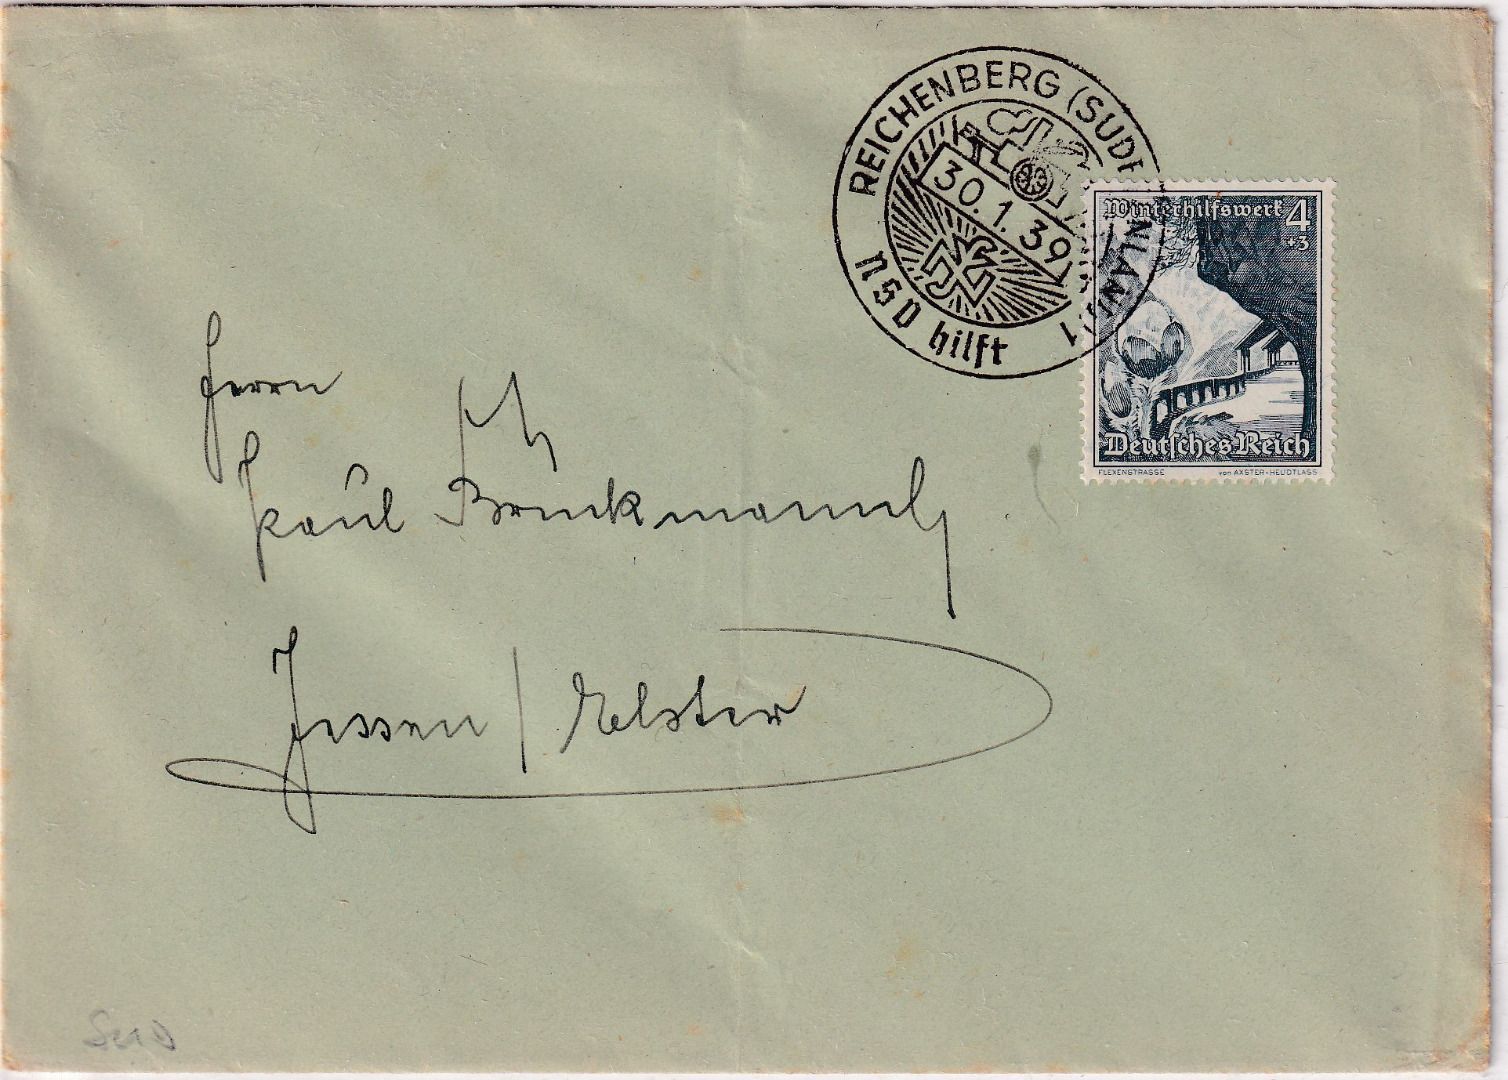 REICHENBERG (SUDETENLAND) 1
30.1.39
NSV hilft
Winterhilfswerk 4
+3
Deutsches Reich
FLEXENSTRASSE von AXSTER-HEUDTLASS
Herrn
Paul
Jessen / Elster